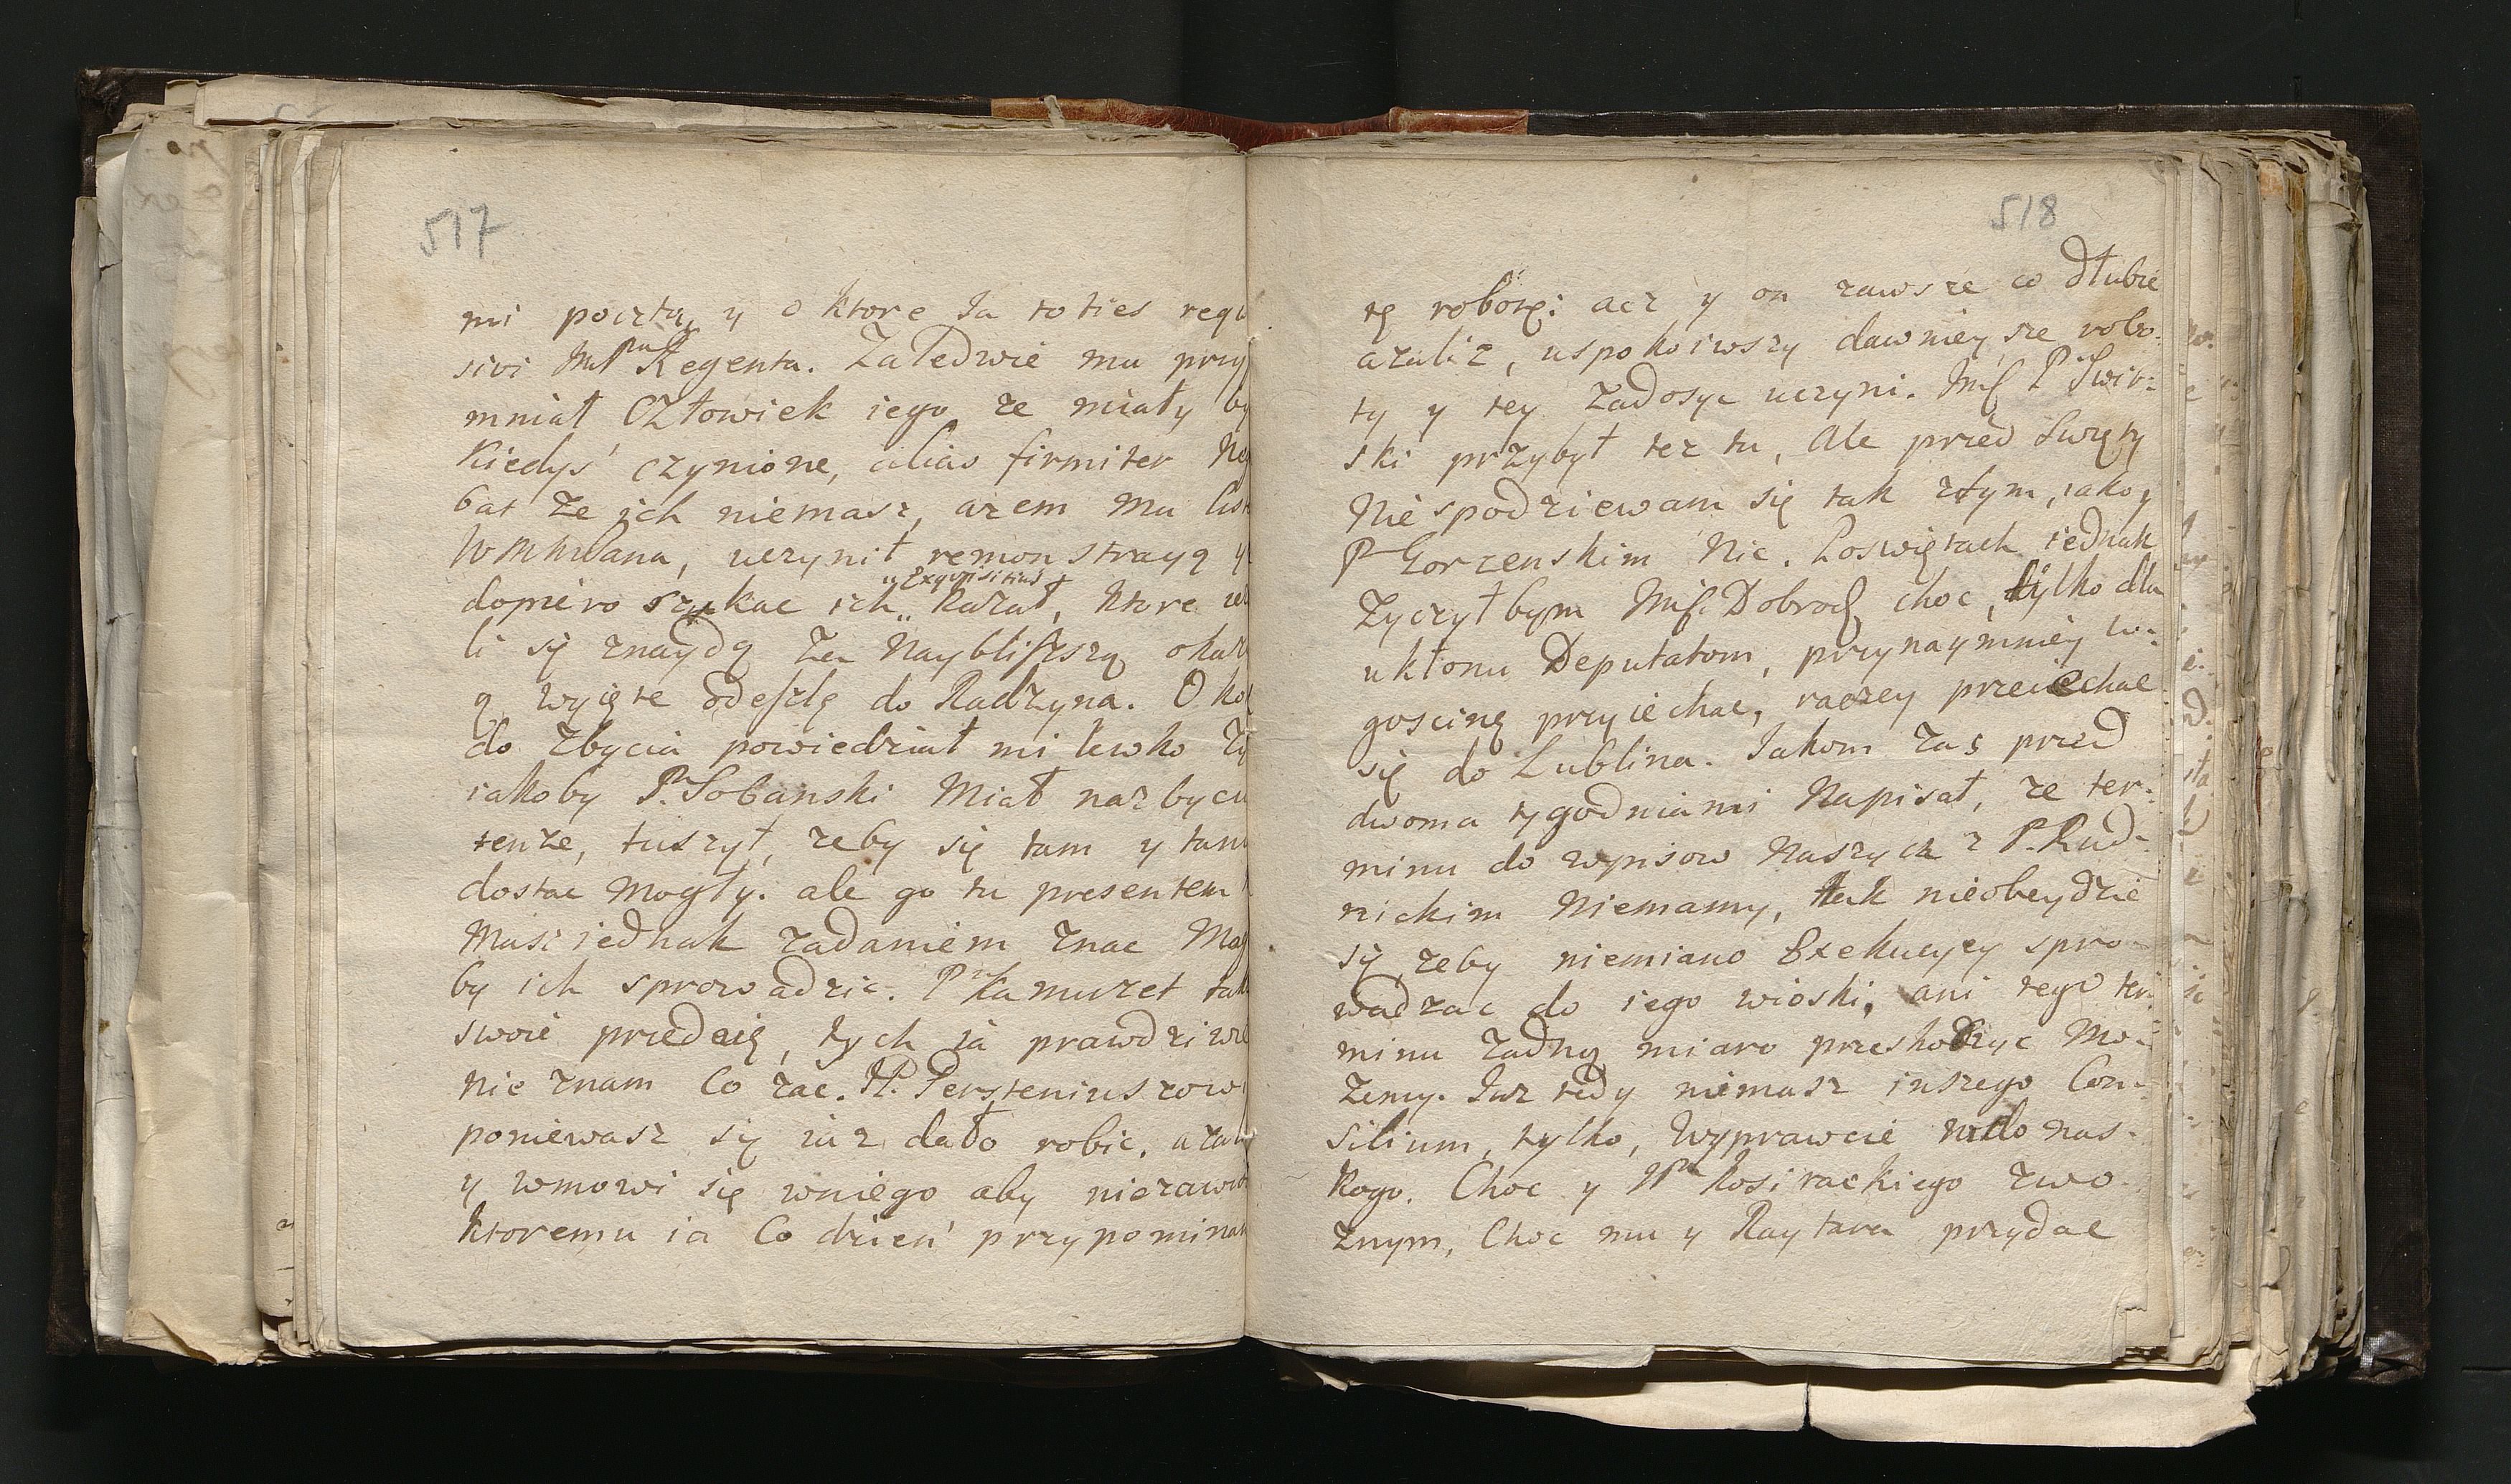 517
mi pocztą, y o ktore Ja toties requ
sivi JmP Regenta. Zaledwie mu przy
mniał Człowiek iego, ze miały by
Kiedyś czynione, alias firmiter Neg
bat ze ich niemasz, azem mu list
WMMPana, uczynił remonstracyą y
"Exquisitius
dopiero szukac ich" Kazał, Ktore ie
li się znaydą Za Naybliższą okaz
ą wyięte odeszlę do Radzyna. O ko
do Zbycia powiedział mi lewko Zy
iakoby P. Sobanski Miał nazbyciu
tenze, tuszył, zeby się tam y tam
dostac Mogły. ale go tu presentem
Masz iednak zadaniem znac Mog
by ich sprowadzic. P Kamuzet tak
swoie przedaię, tych ia prawdziwie
nie znam Co zac. JP. Persteniuszowi
poniewasz się iuz dało robic. azali
y wmowi się wniego aby niezawio
Ktoremu ia Co dzień przypominam
518
tę robotę: acz y on zawsze co dłubie
azaliz, uspokoiwszy dawnieysze robo:
ty y tey Zadosyc uczyni. P Swir:
ski przybył tez tu, Ale przed Swięty
Niespodziewam się tak ztym, iako y
P Gorzenskim Nic. Poswiętach iednak
Zyczył bym Dobrod choc, tylko dla
ukłonu Deputatom, przynaymniey w:
goscinę przyiechac, raczey przeiechac
się do Lublina. Iakom Zas przed
dwoma tygodniami Napisał, ze ter:
minu do wpisow Naszych z P. Rud:
nickim Niemamy, tak nieobeydzie
się, zeby niemiano Exekucyey spro-
wadzac do iego wioski, ani tego ter:
minu Zadną miarą przeskodzyc Mo-
Zemy. Iuz tedy niemasz inszego Con-
silium, tylko, Wyprawcie do nas
Kogo. Choc y JP Kosirackiego zwo-
Znym, Choc mu y Raytara przydac